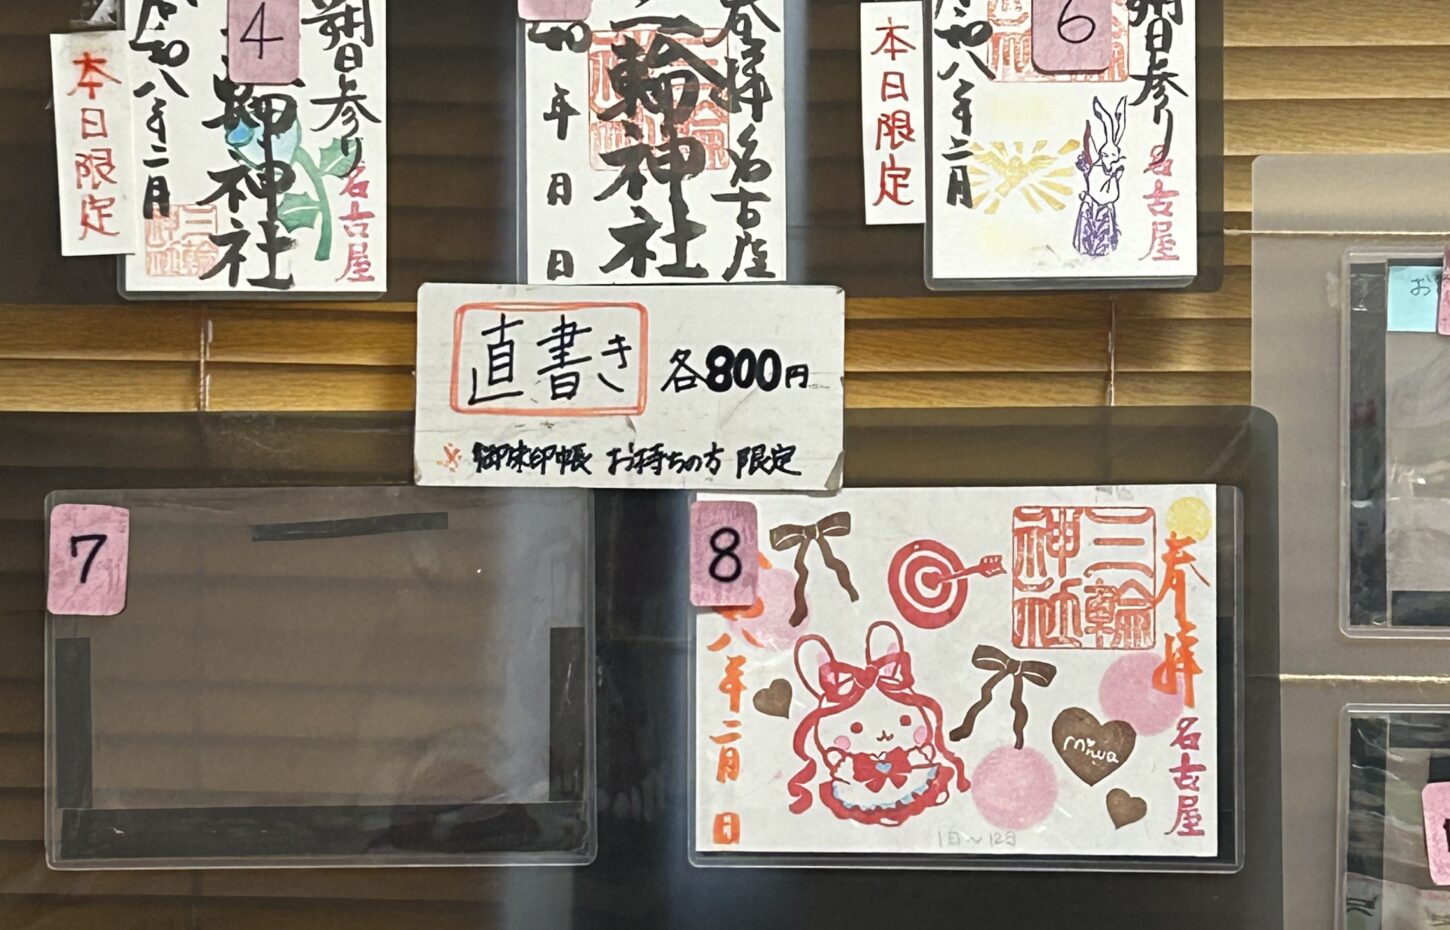 本日限定
令和八年二月
4
神社
三輪神社
朔日参り
名古屋
年 日 日
三輪神社
三輪神社
奉拝 名古屋
本日限定
令和八年二月
6
朔日参り
名古屋
直書き 各800円
※御朱印帳 お持ちの方 限定
7
8
八年二月 日
三輪神社
奉拝
名古屋
miwa
1日〜12日
お